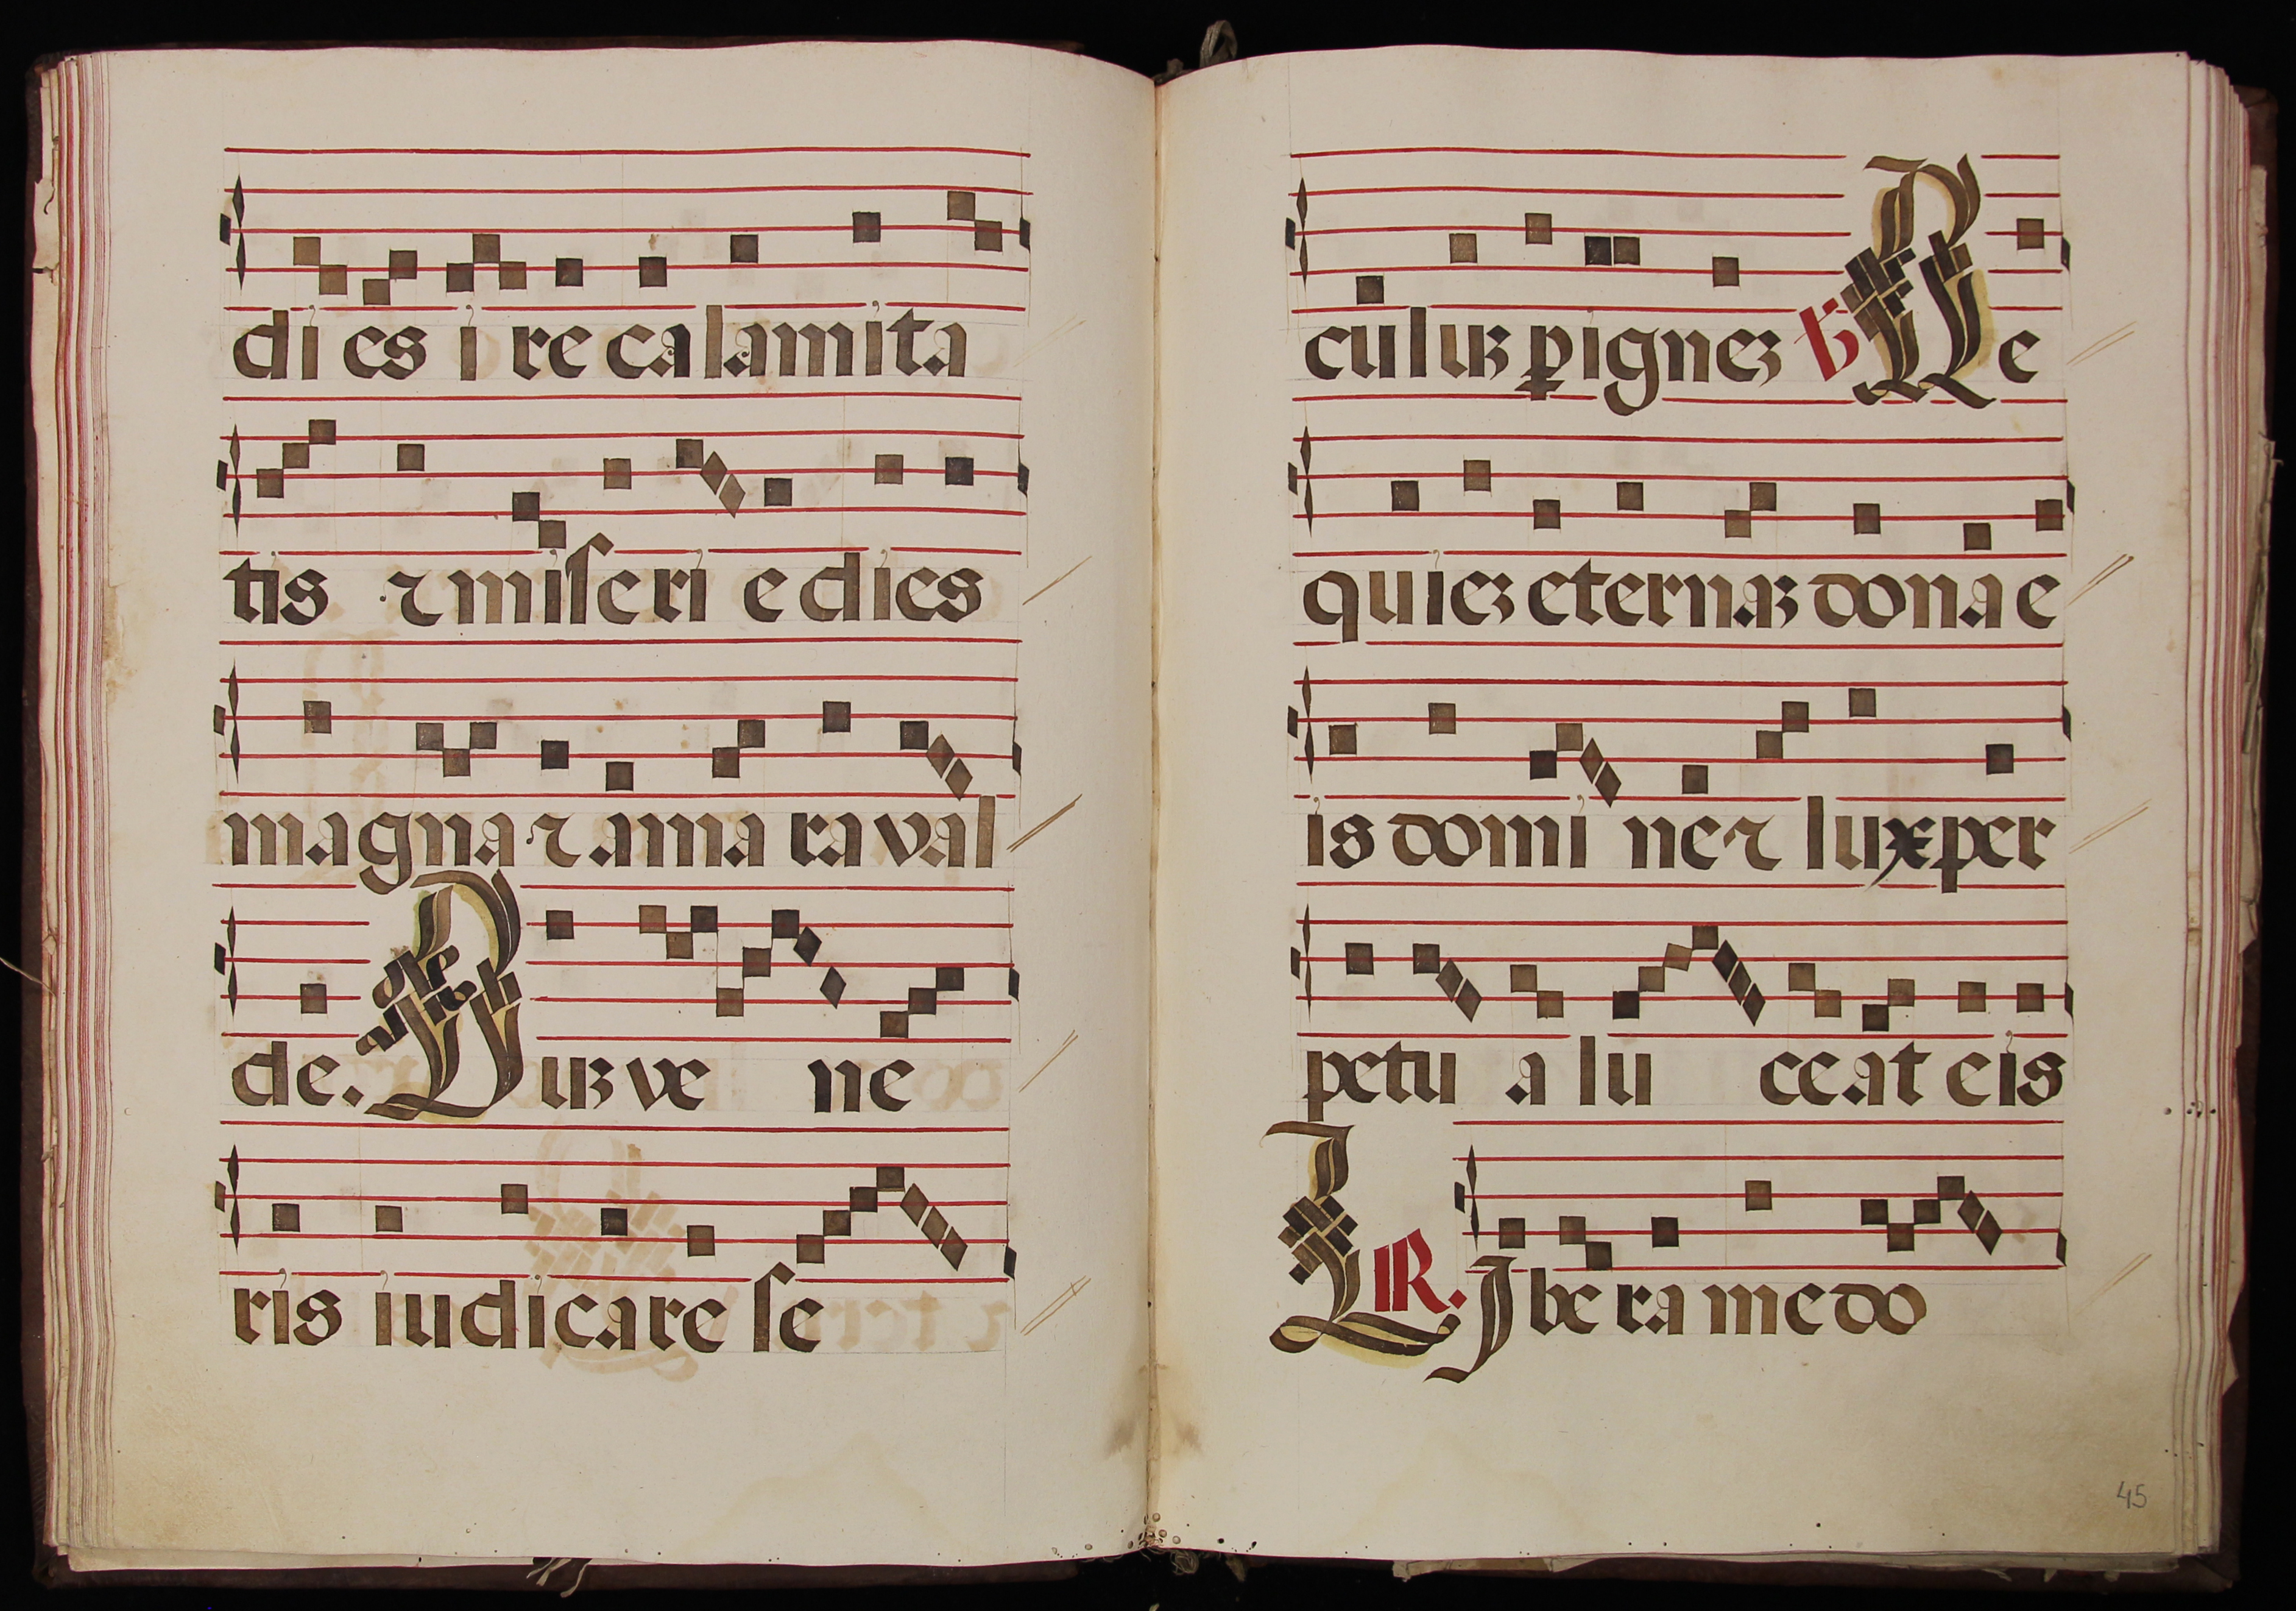 di es i re calamita
tis ⁊ miſeri e dies
magna ⁊ ama ra val
de. Duꝫ ve ne
ris iudicare ſe
culuꝫ ꝑ igneꝫ ℣ Re
quieꝫ eternaꝫ dona e
is domi ne ⁊ lux per
petu a lu ceat eis
L IR. Ibe ra me do
45